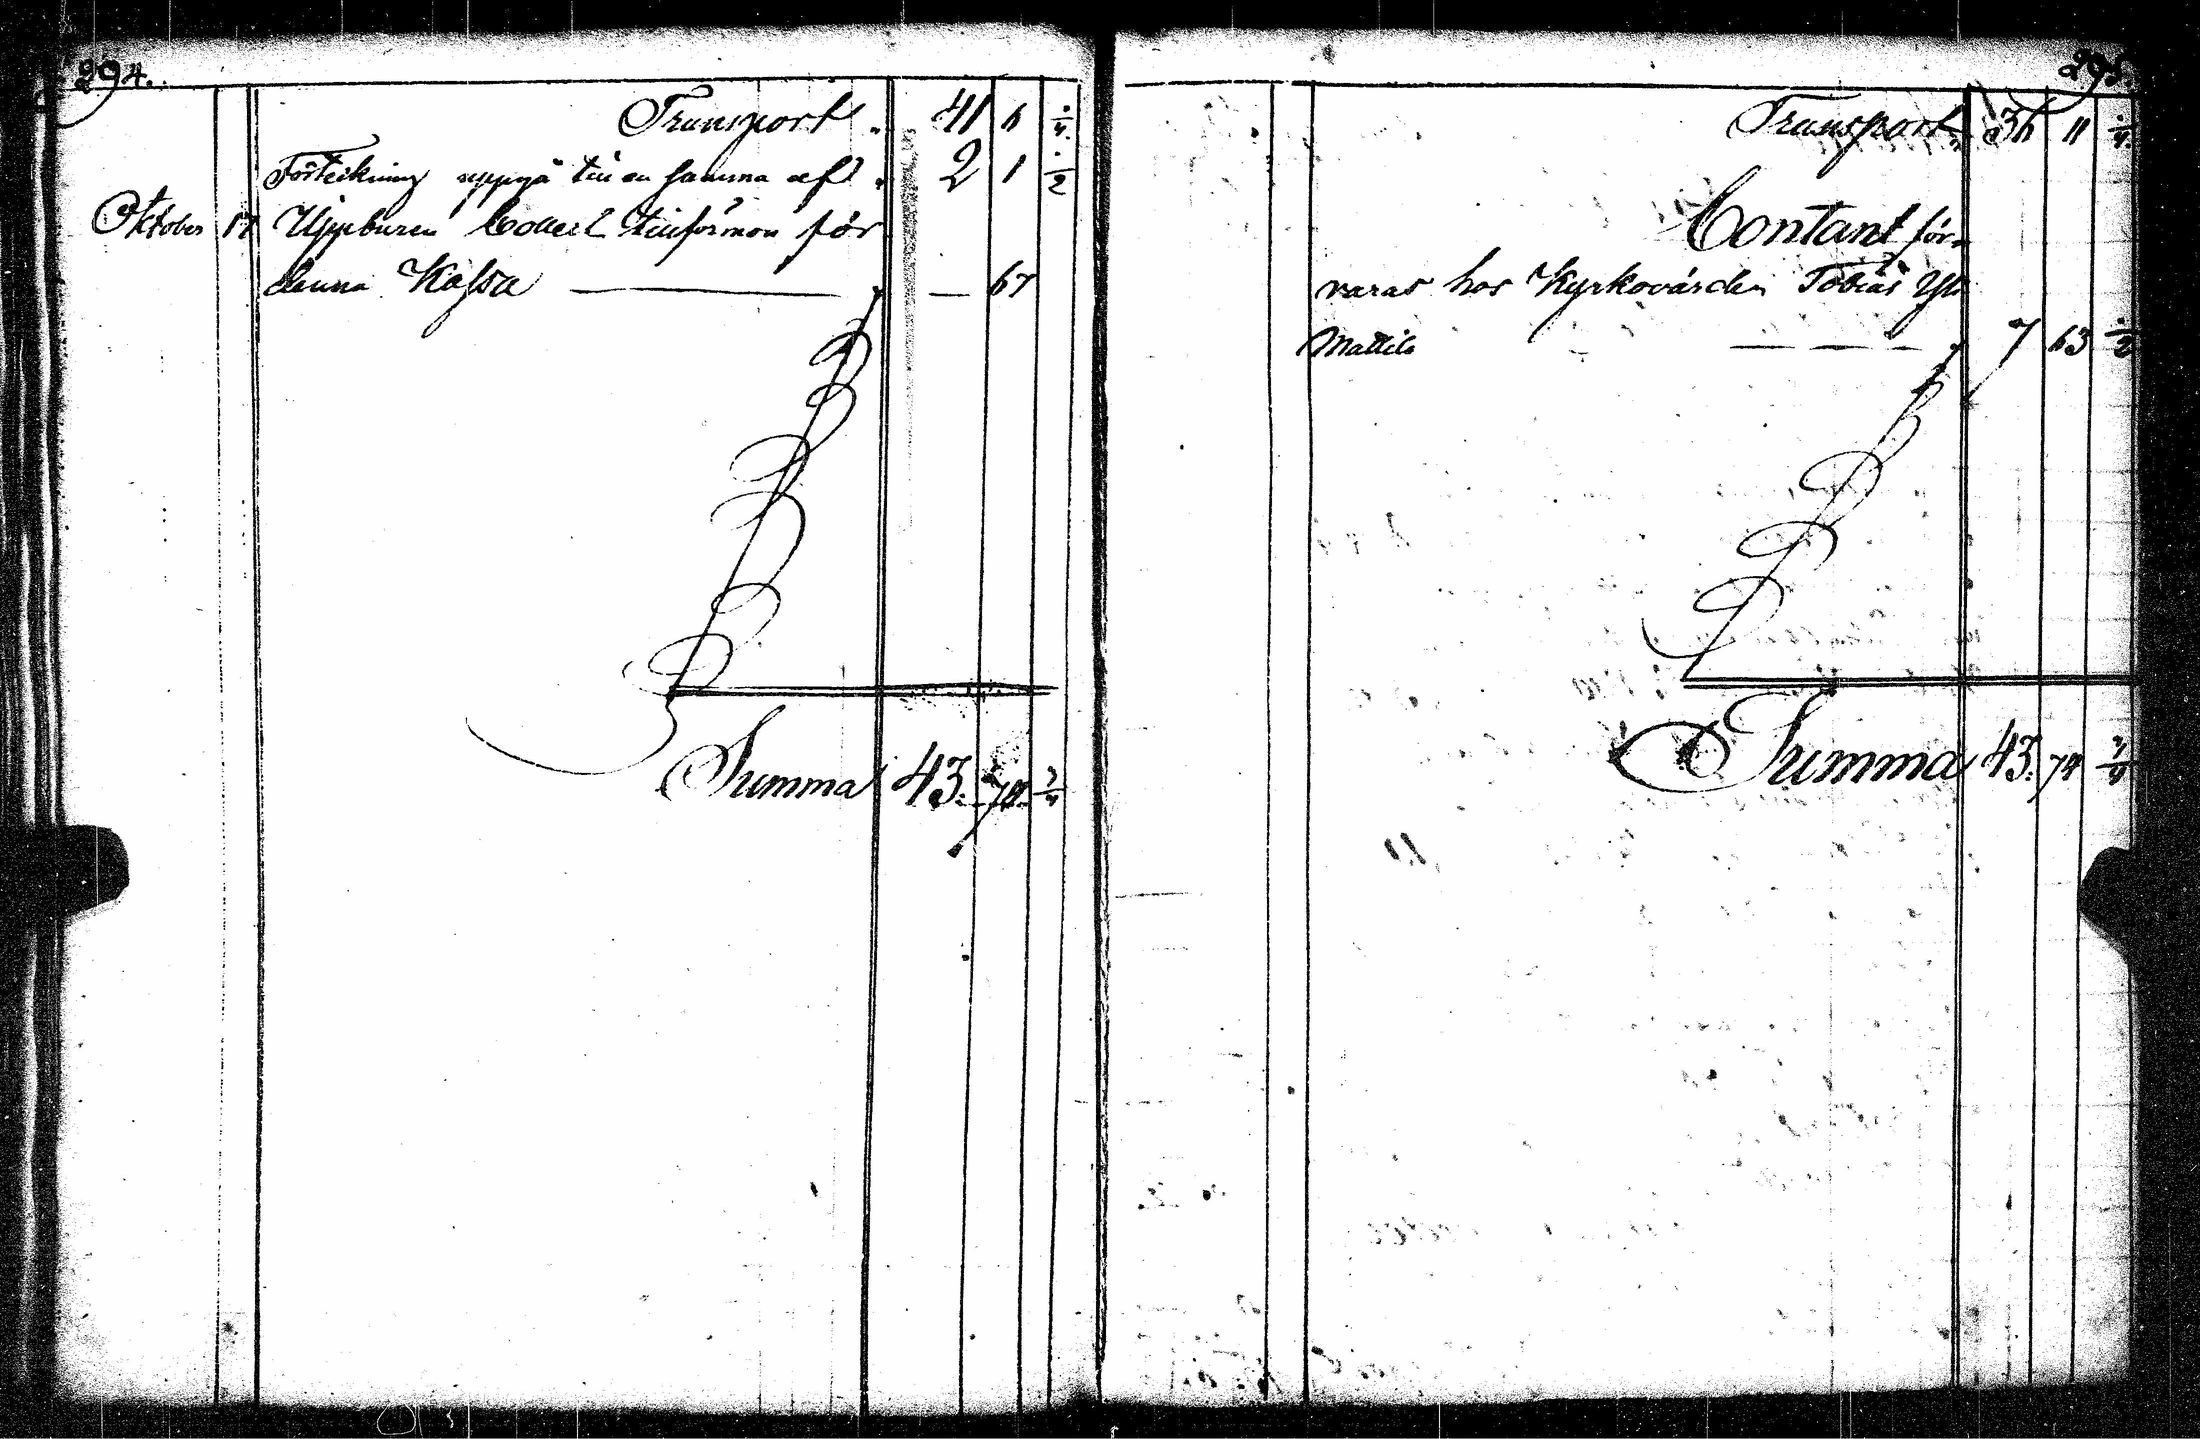 294.
Transport 41 6 1/4
Förteckning uppgå till en summa af 2 1 1/2
Oktober 17 Uppburen Collect tillförmon för
denna Kassa 67
Summa 43. 74. 3/4
295.
Transport 36 11 1/4
Contant för-
varas hos Kyrkovärden Tobias Yli
Mattila 7 63 1/2
Summa 43. 74 3/4